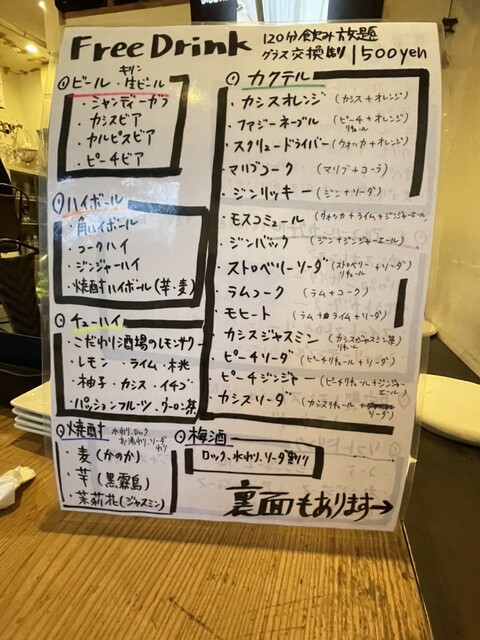 Free Drink 120分飲み放題
グラス交換制 1500yen
ビール・キリン生ビール
・シャンディーガフ
・カシスビア
・カルピスビア
・ピーチビア
ハイボール
・角ハイボール
・コークハイ
・ジンジャーハイ
・焼酎ハイボール(芋・麦)
チューハイ
・こだわり酒場のレモンサワー
・レモン・ライム・桃
・柚子・カシス・イチゴ
・パッションフルーツ・ウーロン茶
焼酎 水わり、ロック
お湯わり、ソーダわり
・麦(かのか)
・芋(黒霧島)
・茉莉花(ジャスミン)
梅酒
ロック、水わり、ソーダ割り
カクテル
・カシスオレンジ (カシス+オレンジ)
・ファジーネーブル (ピーチリキュール+オレンジ)
・スクリュードライバー(ウォッカ+オレンジ)
・マリブコーク (マリブ+コーラ)
・ジンリッキー (ジン+ソーダ)
・モスコミュール (ウォッカ+ライム+ジンジャーエール)
・ジンバック (ジン+ジンジャーエール)
・ストロベリーソーダ (ストロベリーリキュール+ソーダ)
・ラムコーク (ラム+コーク)
・モヒート (ラム+ライム+ソーダ)
・カシスジャスミン (カシスリキュール+ジャスミン茶)
・ピーチソーダ (ピーチリキュール+ソーダ)
・ピーチジンジャー (ピーチリキュール+ジンジャーエール)
・カシスソーダ (カシスリキュール+ソーダ)
裏面もあります→